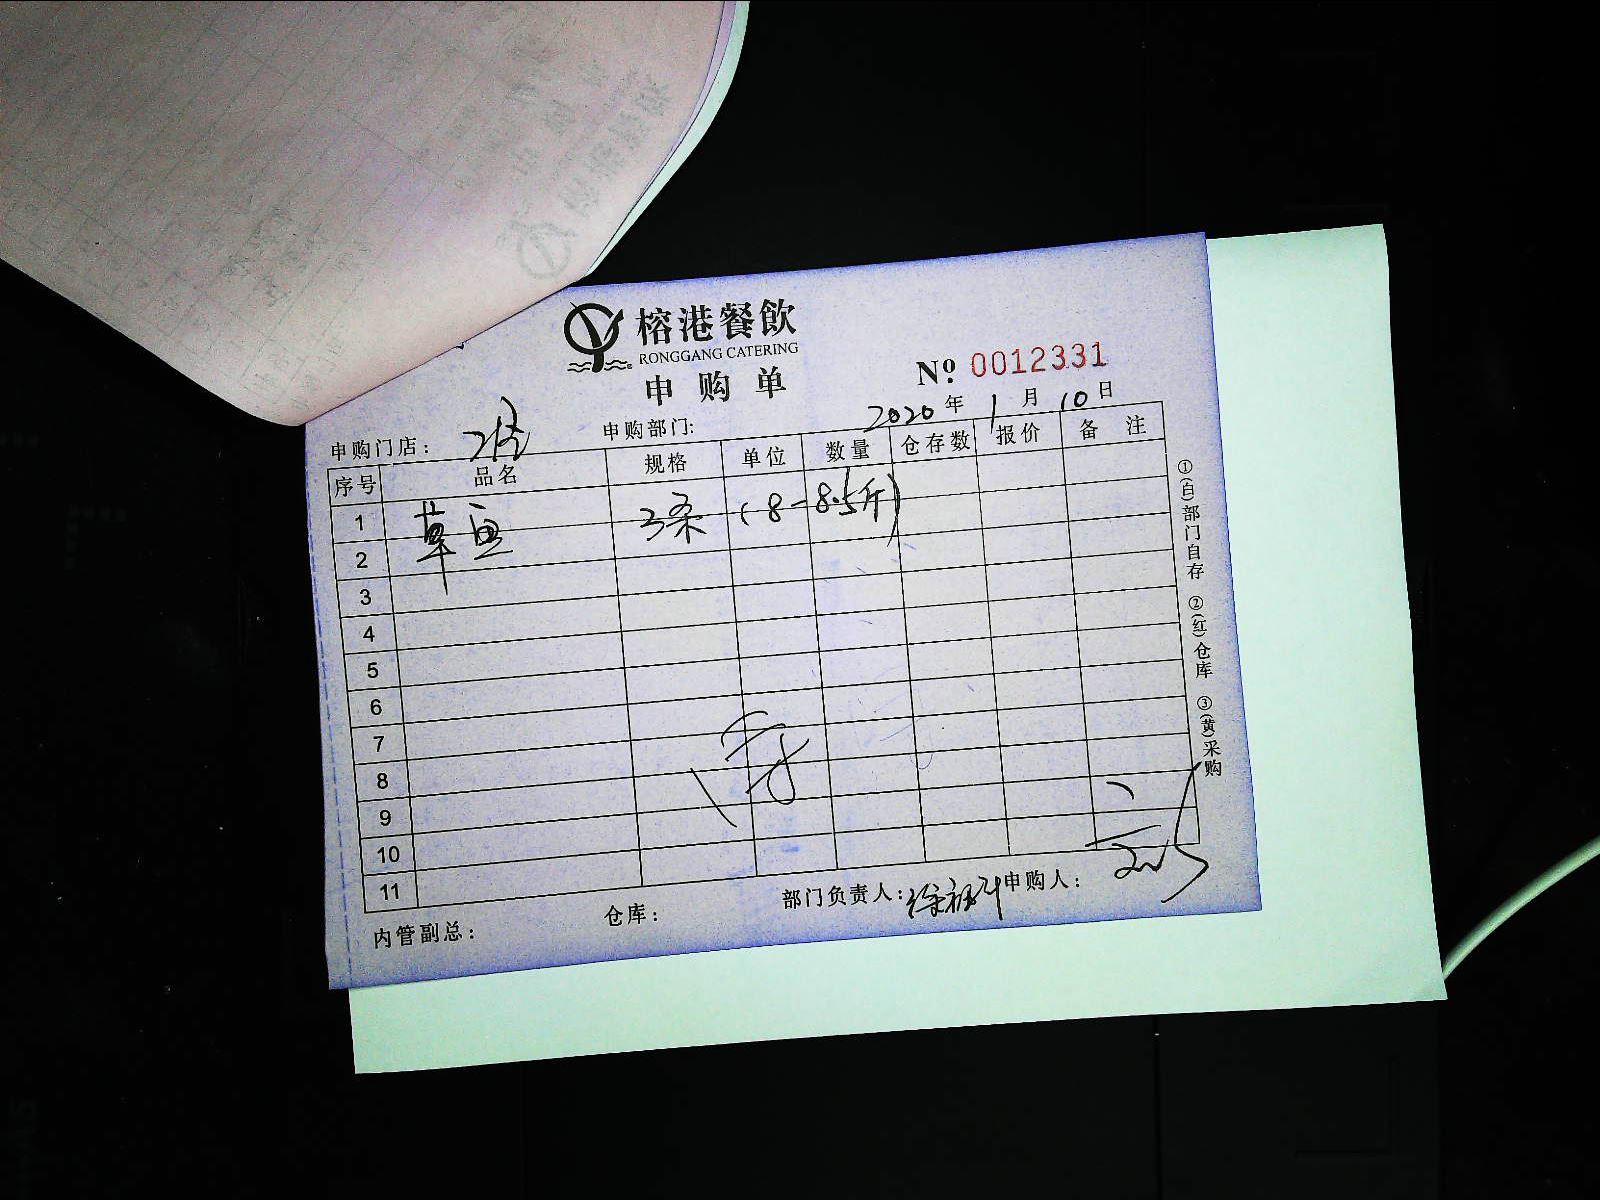 榕港餐飲
RONGGANG CATERING
申购单
№ 0012331
2020年1月10日
申购门店：
申购部门:
序号 品名 规格 单位 数量 仓存数 报价 备注
1 草鱼 3条 (8-8.5斤)
2
3
4
5
6
7
8
9
10
11
①(白)部门自存 ②(红)仓库 ③(黄)采购
内管副总： 仓库： 部门负责人： 申购人：